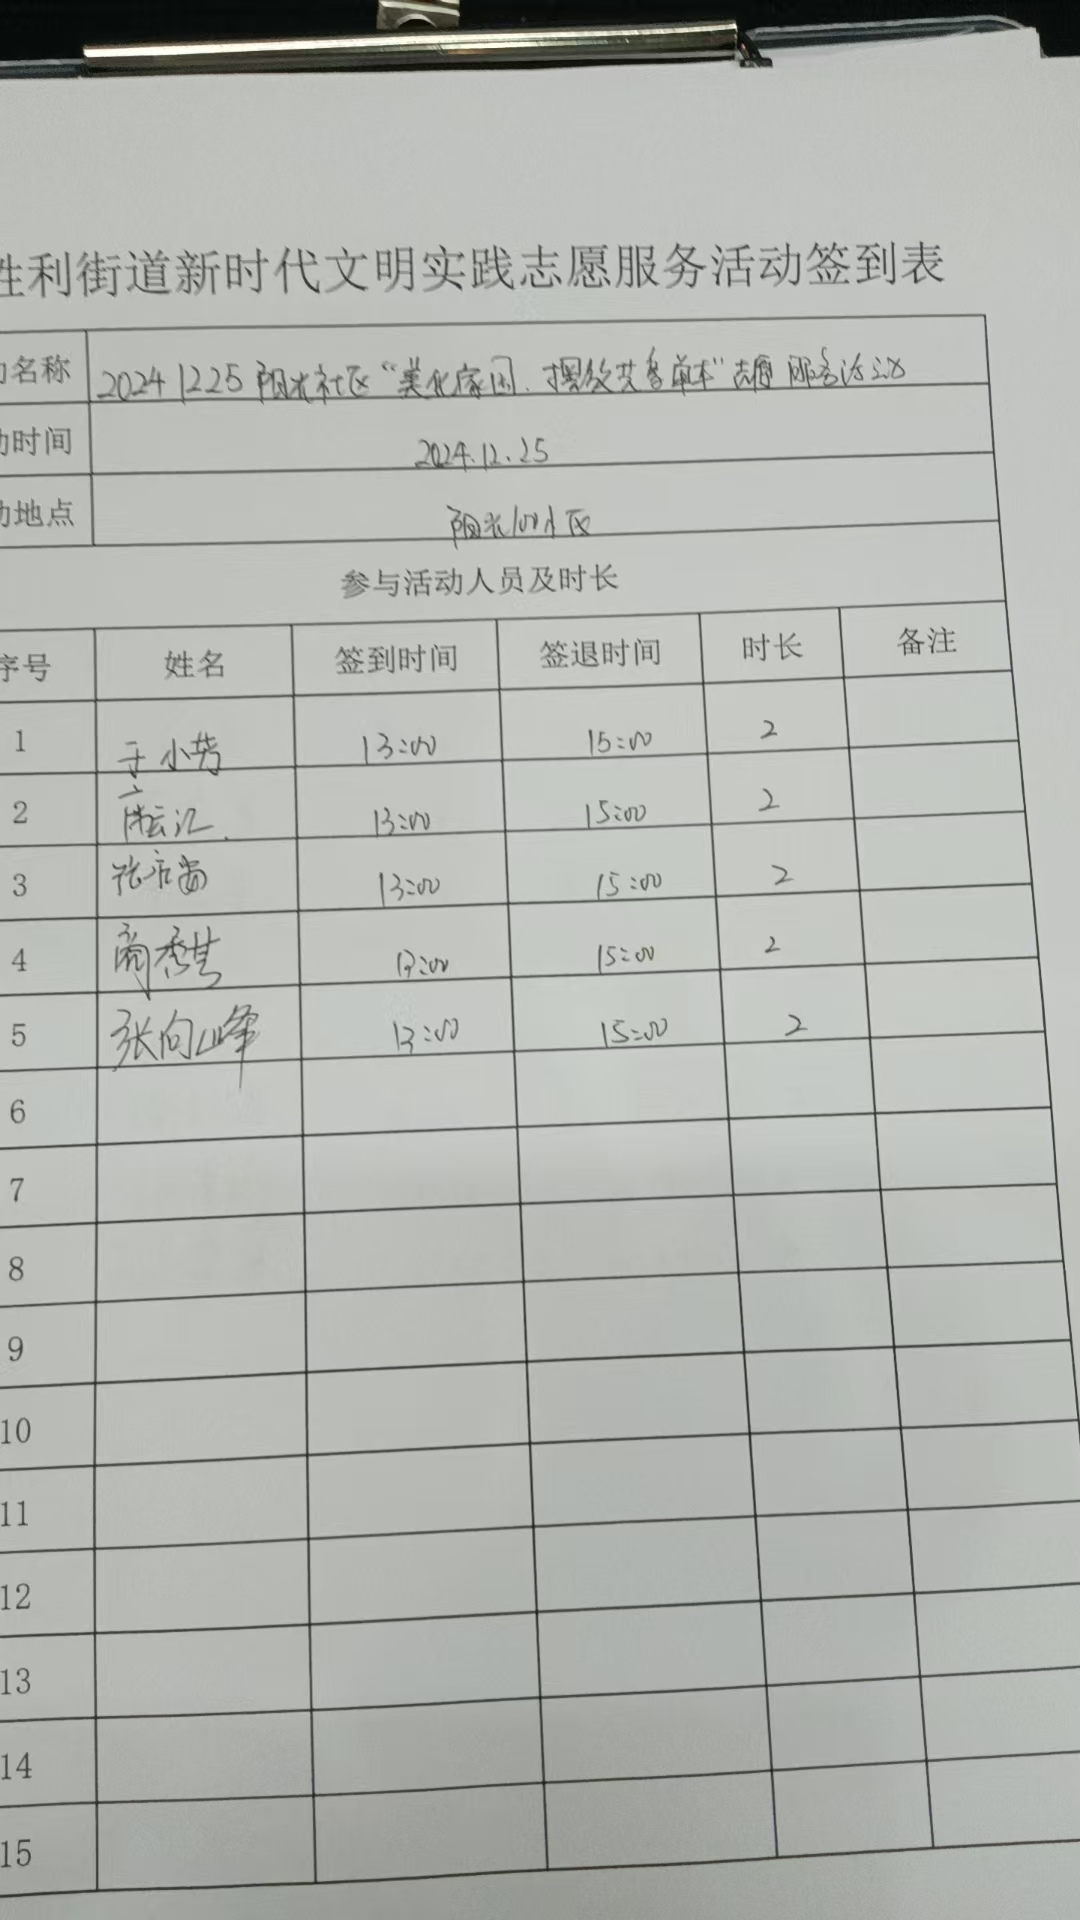 胜利街道新时代文明实践志愿服务活动签到表
动名称 20241225 阳光社区“美化家园、摆放共享单车”志愿服务活动
动时间 2024.12.25
动地点 阳光100小区
参与活动人员及时长
序号 姓名 签到时间 签退时间 时长 备注
1 于小芳 13:00 15:00 2
2 13:00 15:00 2
3 13:00 15:00 2
4 13:00 15:00 2
5 张向峰 13:00 15:00 2
6
7
8
9
10
11
12
13
14
15